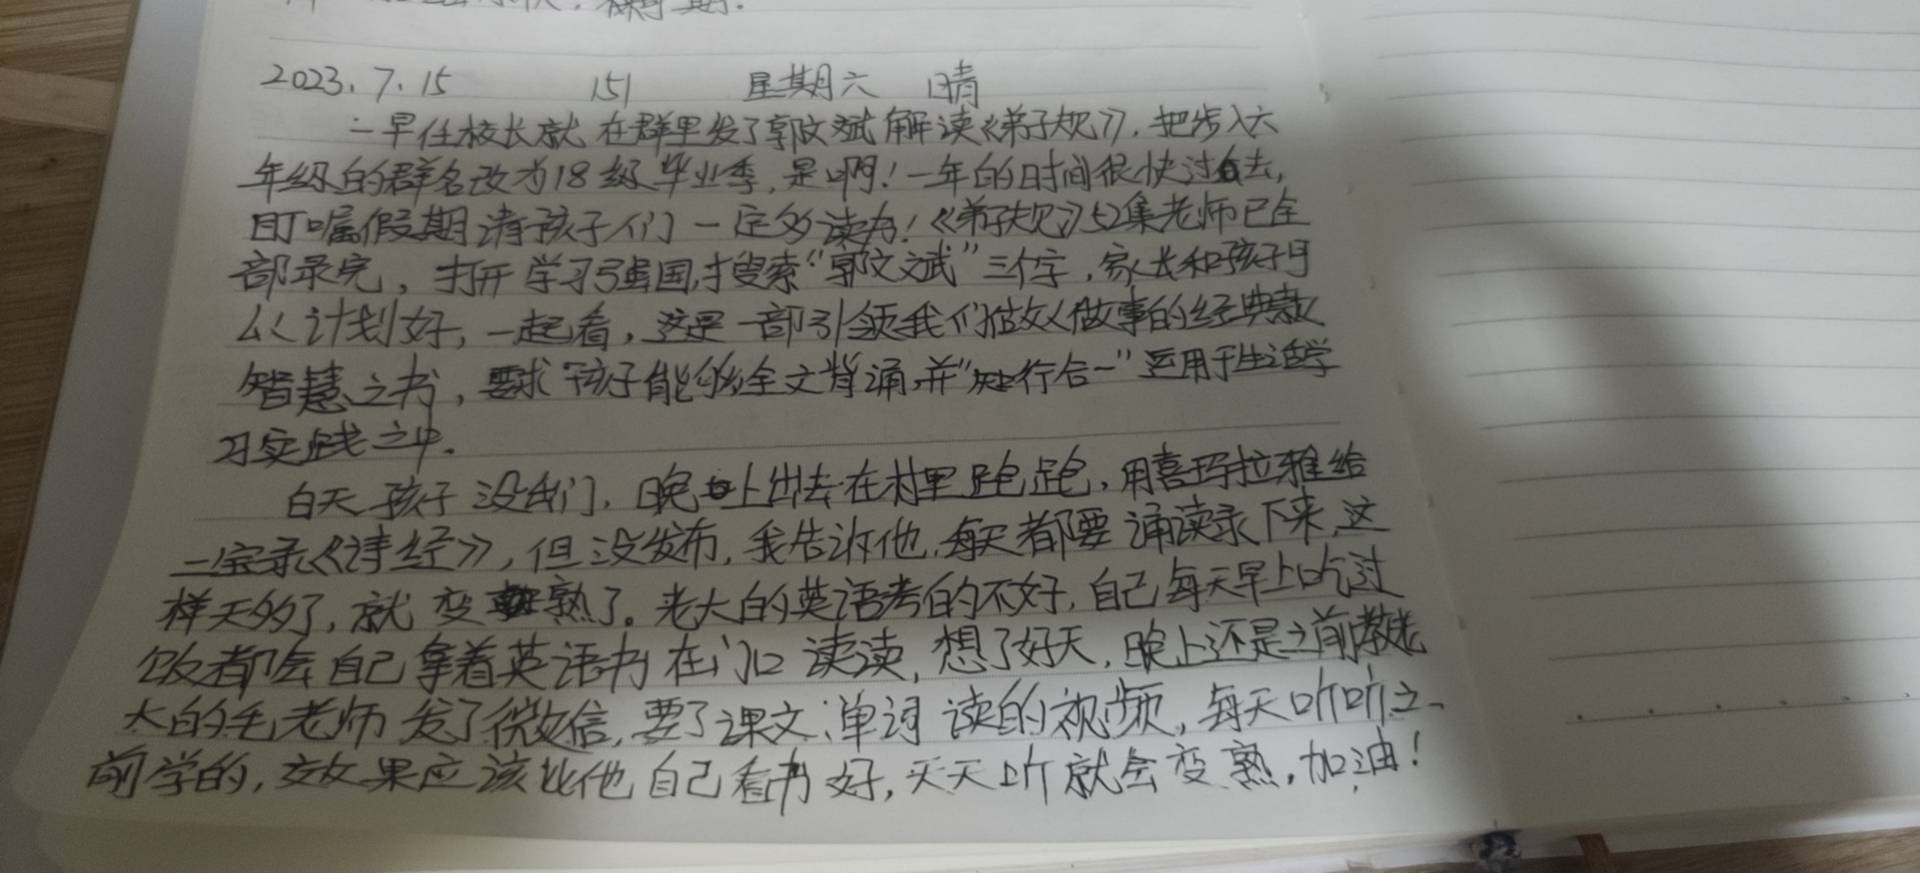 2023.7.15 151 星期六 晴
一早任校长就在群里发了郭文斌解读《弟子规》,把步入六
年级的群名改为18级毕业季,是啊!一年的时间很快过去,
叮嘱假期请孩子们一定多读书!《弟子规》52集老师已全
部录完,打开学习强国,搜索“郭文斌”三个字,家长和孩子可
以计划好,一起看,这是一部引领我们做人做事的经典款
智慧之书,要求孩子能够全文背诵,并“知行合一”运用于生活学
习实践之中.
白天孩子没出门,晚上出去在村里跑跑,用喜玛拉雅给
二宝录《诗经》,但没发布,我告诉他,每天都要诵读录下来,这
样天多了,就变熟了。老大的英语考的不好,自己每天早上吃过
饭都会自己拿着英语书在门口读读,想了好天,晚上还是之前教老
大的毛老师发了微信,要了课文、单词读的视频,每天听听之
前学的,效果应该比他自己看书好,天天听就会变熟,加油!